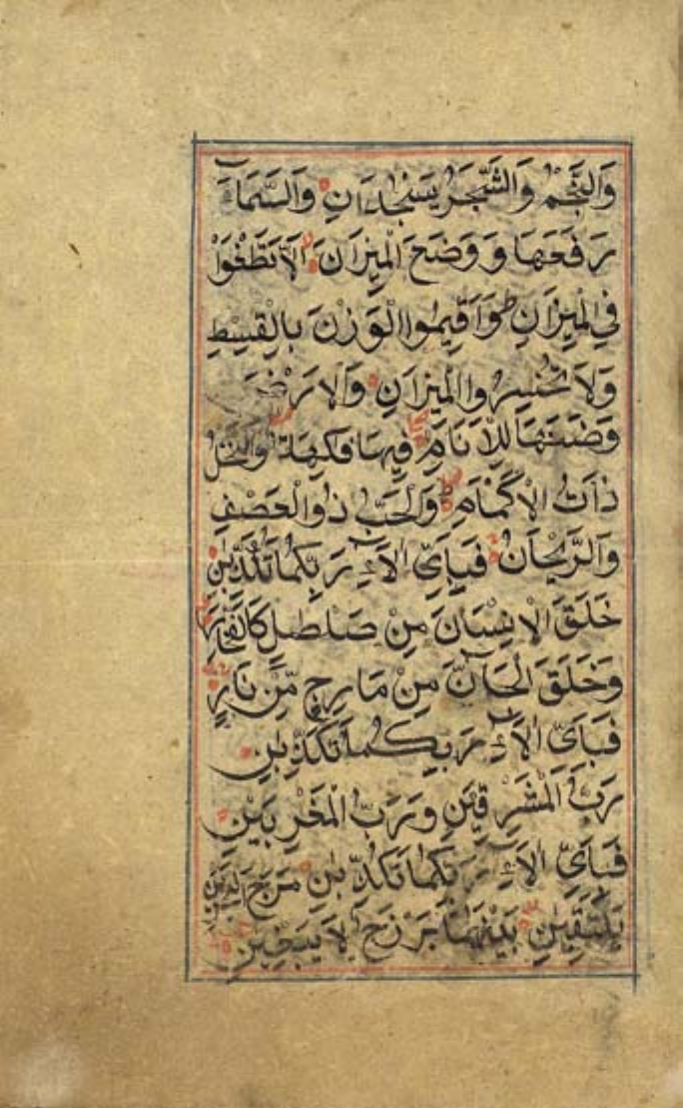 وَالنَّجْمُ وَالشَّجَرُ يَسْجُدَانِ وَالسَّمَآءَ
رَفَعَهَا وَوَضَعَ الْمِيزَانَ اَلَّا تَطْغَوْا
فِي الْمِيزَانِ وَاَقِيمُوا الْوَزْنَ بِالْقِسْطِ
وَلَا تُخْسِرُوا الْمِيزَانَ وَالْاَرْضَ
وَضَعَهَا لِلْاَنَامِ فِيهَا فَاكِهَةٌ وَالنَّخْلُ
ذَاتُ الْاَكْمَامِ وَالْحَبُّ ذُو الْعَصْفِ
وَالرَّيْحَانُ فَبِاَيِّ اٰلَآءِ رَبِّكُمَا تُكَذِّبٰنِ
خَلَقَ الْاِنْسَانَ مِنْ صَلْصَلٍ كَالْفَخَّارِ
وَخَلَقَ الْجَآنَّ مِنْ مَارِجٍ مِّنْ نَارٍ
فَبِاَيِّ اٰلَآءِ رَبِّكُمَا تُكَذِّبٰنِ
رَبُّ الْمَشْرِقَيْنِ وَرَبُّ الْمَغْرِبَيْنِ
فَبِاَيِّ اٰلَآءِ رَبِّكُمَا تُكَذِّبٰنِ مَرَجَ الْبَحْرَيْنِ
يَلْتَقِيٰنِ بَيْنَهُمَا بَرْزَخٌ لَا يَبْغِيٰنِ